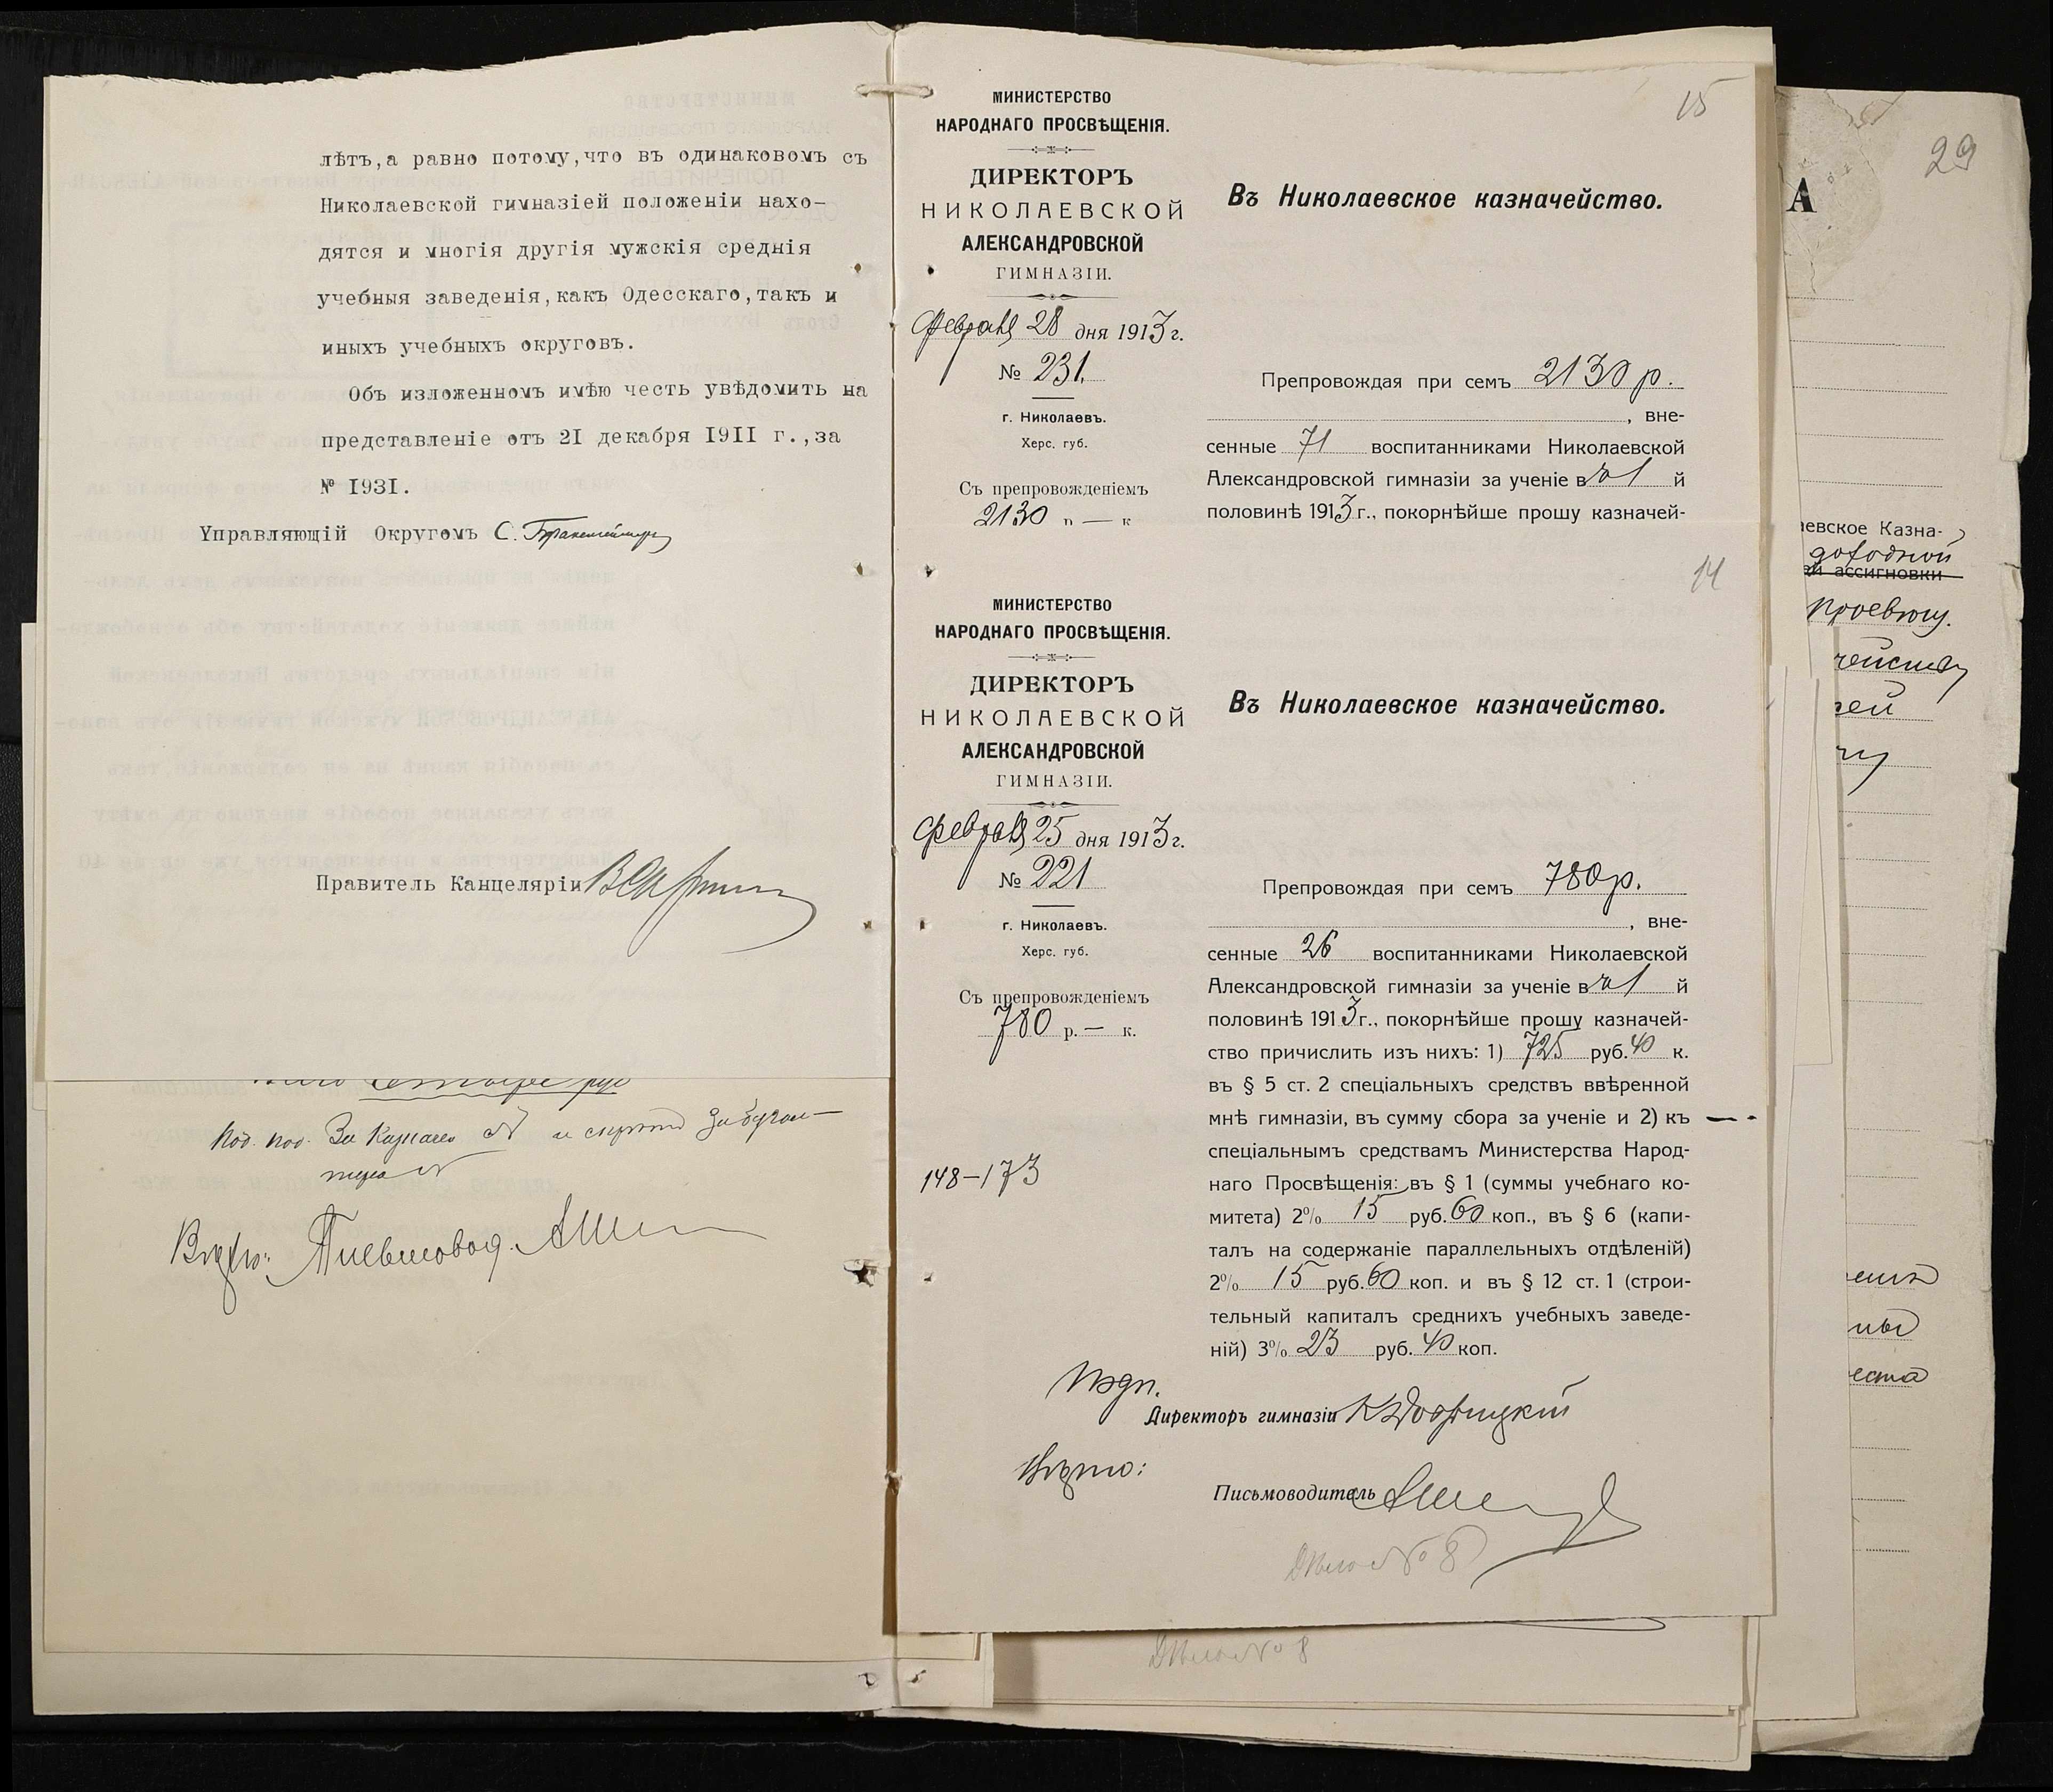 лѣтъ,а равно потому,что въ одинаковомъ съ
Николаевской гимназіей положеніи нахо-
дятся и многія другія мужскія среднія
учебныя заведенія,какъ Одесскаго,такъ и
иныхъ учебныхъ округовъ.
Объ изложенномъ имѣю честь увѣдомить на
представленіе отъ 21 декабря 1911 г.,за
№ 1931.
Управляющій Округомъ С.
Правитель Канцеляріи
Под. под. За Казначея и скрѣпа За бухгал-
тера
Вѣрно: Письмовод.
15
МИНИСТЕРСТВО
НАРОДНАГО ПРОСВѢЩЕНІЯ.
ДИРЕКТОРЪ
НИКОЛАЕВСКОЙ
АЛЕКСАНДРОВСКОЙ
ГИМНАЗІИ.
Февраля 28 дня 1913 г.
№ 231.
г. Николаевъ.
Херс. губ.
Съ препровожденіемъ
2130 р — к
Въ Николаевское казначейство.
Препровождая при семъ 2130 р.
, вне-
сенные 71 воспитанниками Николаевской
Александровской гимназіи за ученіе въ 1 й
половинѣ 1913 г., покорнѣйше прошу казначей-
14
МИНИСТЕРСТВО
НАРОДНАГО ПРОСВѢЩЕНІЯ.
ДИРЕКТОРЪ
НИКОЛАЕВСКОЙ
АЛЕКСАНДРОВСКОЙ
ГИМНАЗІИ.
Февраля 25 дня 1913 г.
№ 221
г. Николаевъ.
Херс. губ.
Съ препровожденіемъ
780 р. — к.
148-173
Въ Николаевское казначейство.
Препровождая при семъ 780 р.
, вне-
сенные 26 воспитанниками Николаевской
Александровской гимназіи за ученіе въ 1 й
половинѣ 1913 г., покорнѣйше прошу казначей-
ство причислить изъ нихъ: 1) 725 руб. 40 к.
въ § 5 ст. 2 спеціальныхъ средствъ ввѣренной
мнѣ гимназіи, въ сумму сбора за ученіе и 2) къ
спеціальнымъ средствамъ Министерства Народ-
наго Просвѣщенія: въ § 1 (суммы учебнаго ко-
митета) 2% 15 руб. 60 коп., въ § 6 (капи-
талъ на содержаніе параллельныхъ отдѣленій)
2% 15 руб. 60 коп. и въ § 12 ст. 1 (строи-
тельный капиталъ среднихъ учебныхъ заведе-
ній) 3% 23 руб. 40 коп.
Подп.
Директоръ гимназіи
Вѣрно:
Письмоводитель
Дѣло № 8
Дѣло № 8
29
А
аевское Казна-
доходной
ей ассигновки